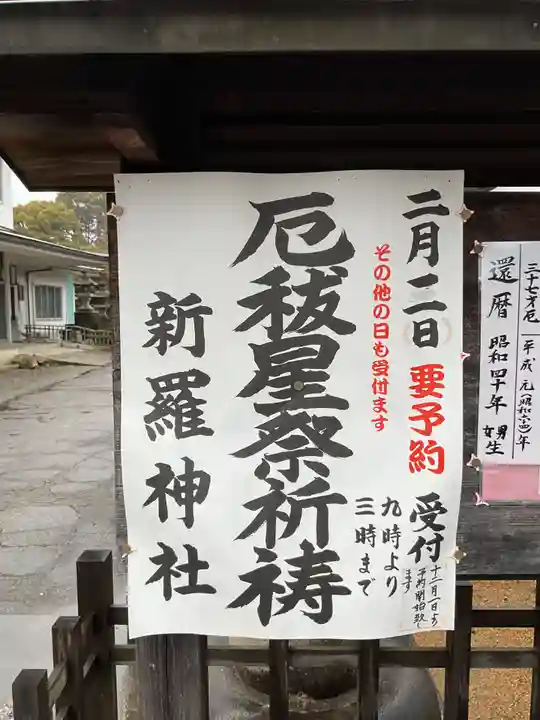 三十七才厄 平成元(昭和六四)年
還暦 昭和四十年 生
二月二日 要予約 受付
十二月一日より
予約開始致し
ます
その他の日も受付ます
九時より
三時まで
厄祓星祭祈祷
新羅神社